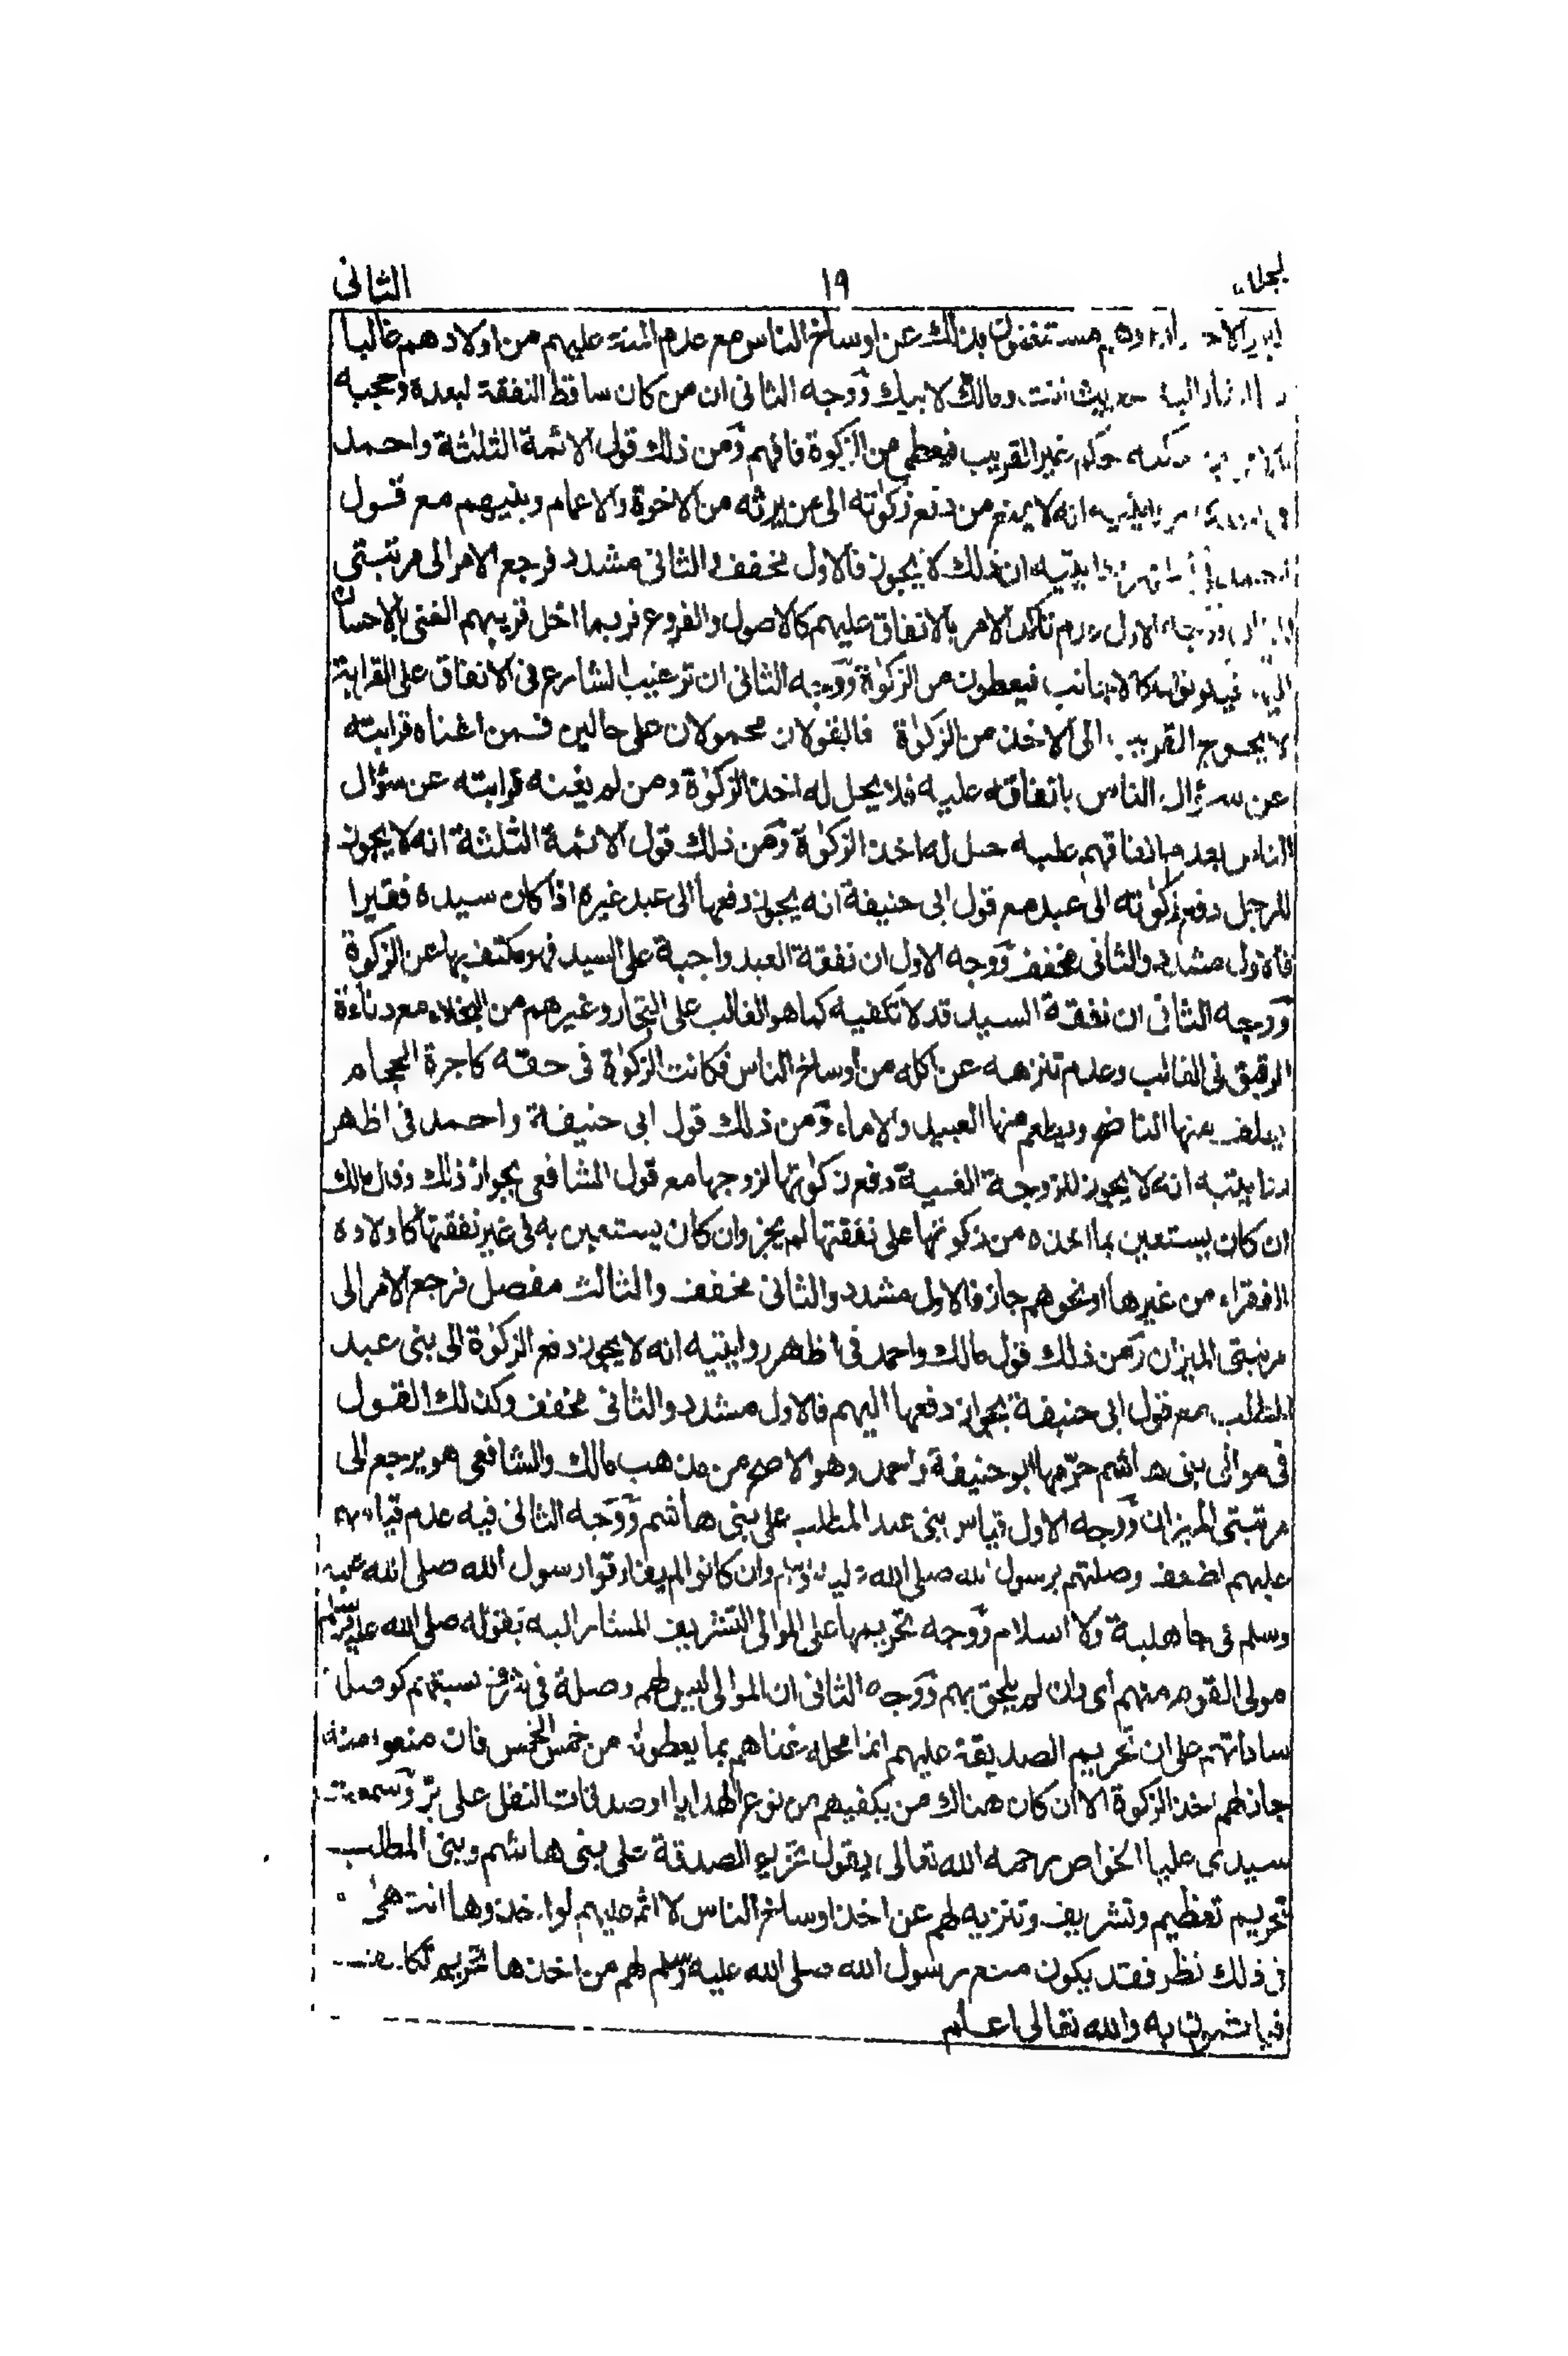 الثانى ١٩
وهم مستغنون بذلك عن اوساخ الناس مع عدم المنة عليهم من اولادهم غالبا
حديث انت ومالك لابيك ووجه الثانى ان من كان ساقط النفقة لبعده وحجبه
حكم غير القريب فيعطى من الزكوة فافهم ومن ذلك قول الائمة الثلثة واحمد
انه لا يمنع من دفع زكوته الى من يرثه من الاخوة والاعمام وبنيهم مع قول
ان ذلك لا يجوز فالاول مخفف والثانى مشدد فرجع الامر الى مرتبتى
الاول عدم تأكد الامر بالانفاق عليهم كالاصول والفروع فربما اخل قريبهم الغنى بالاحسان
كالاجانب فيعطون من الزكوة ووجه الثانى ان ترغيب الشارع فى الانفاق على القرابة
لا يحوج القريب الى الاخذ من الزكوة فالقولان محمولان على حالين فمن اغناه قرابته
عن سؤال الناس بانفاقه عليه فلا يحل له اخذ الزكوة ومن لم يغنه قرابته عن سؤال
الناس بعدم انفاقهم عليه حل له اخذ الزكوة ومن ذلك قول الائمة الثلثة انه لا يجوز
للرجل دفع زكوته الى عبد مع قول ابى حنيفة انه يجوز دفعها الى عبد غيره اذا كان سيده فقيرا
فالاول مشدد والثانى مخفف ووجه الاول ان نفقة العبد واجبة على السيد فهو مكتف بها عن الزكوة
ووجه الثانى ان نفقة السيد قد لا تكفيه كما هو الغالب على التجار وغيرهم من البخلاء مع دناءة
الرقيق فى الغالب وعدم تنزهه عن اكله من اوساخ الناس فكانت الزكوة فى حقه كاجرة الحجام
يعلف منها الناضح ويطعم منها العبيد والاماء ومن ذلك قول ابى حنيفة واحمد فى اظهر
روايتيه انه لا يجوز للزوجة الغنية دفع زكوتها لزوجها مع قول الشافعى بجواز ذلك وقال مالك
ان كان يستعين بما اخذه من زكوتها على نفقتها لم يجز وان كان يستعين به فى غير نفقتها كاولاده
الفقراء من غيرها او نحوهم جاز فالاول مشدد والثانى مخفف والثالث مفصل فرجع الامر الى
مرتبتى الميزان ومن ذلك قول مالك واحمد فى اظهر روايتيه انه لا يجوز دفع الزكوة الى بنى عبد
المطلب مع قول ابى حنيفة بجواز دفعها اليهم فالاول مشدد والثانى مخفف وكذلك القول
فى موالى بنى هاشم حرّمها ابو حنيفة واحمد وهو الاصح من مذهب مالك والشافعى هو يرجع الى
مرتبتى الميزان ووجه الاول قياس بنى عبد المطلب على بنى هاشم ووجه الثانى فيه عدم قياسهم
عليهم لضعف وصلتهم برسول الله صلى الله عليه وسلم وان كانوا لم يفارقوا رسول الله صلى الله عليه
وسلم فى جاهلية ولا اسلام ووجه تحريمها على الموالى التشريف المشار اليه بقوله صلى الله عليه وسلم
مولى القوم منهم اى وان لم يلحق بهم ووجه الثانى ان الموالى ليس لهم وصلة فى شرف نسبتهم كوصلة
ساداتهم على ان تحريم الصدقة عليهم انما محله غناهم بما يعطون من خمس الخمس فان منعوا منه
جاز لهم اخذ الزكوة الا ان كان هناك من يكفيهم من نوع الهدايا او صدقات النفل على برّ وسمعت
سيدى عليا الخواص رحمه الله تعالى يقول تحريم الصدقة على بنى هاشم وبنى المطلب
تحريم تعظيم وتشريف وتنزيه لهم عن اخذ اوساخ الناس لا اثم عليهم لو اخذوها انتهى
فى ذلك نظر فقد يكون منع رسول الله صلى الله عليه وسلم لهم من اخذها تحريم
به والله تعالى اعلم